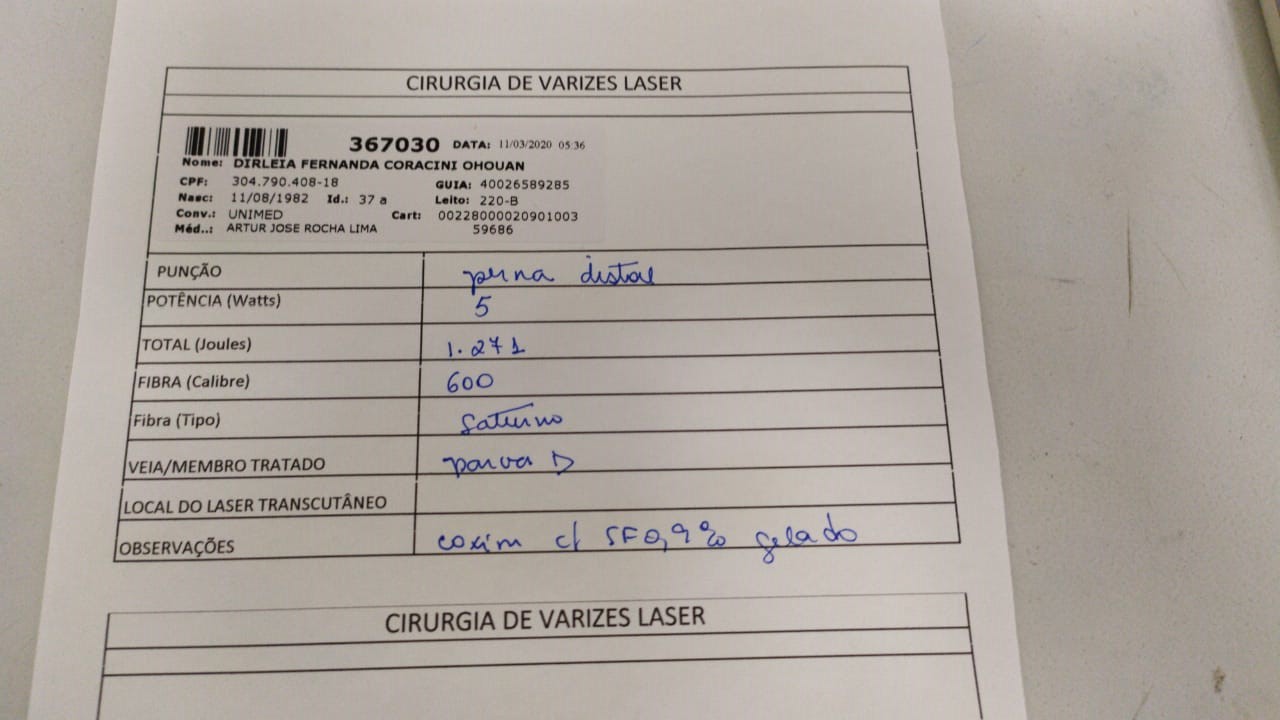 CIRURGIA DE VARIZES LASER
367030 DATA: 11/03/2020 05:36
Nome: DIRLEIA FERNANDA CORACINI OHOUAN
CPF: 304.790.408-18 GUIA: 40026589285
Nasc: 11/08/1982 Id.: 37 a Leito: 220-B
Conv.: UNIMED Cart: 00228000020901003
Méd..: ARTUR JOSE ROCHA LIMA 59686
PUNÇÃO perna distal
POTÊNCIA (Watts) 5
TOTAL (Joules) 1.271
FIBRA (Calibre) 600
Fibra (Tipo) Saturno
VEIA/MEMBRO TRATADO parva D
LOCAL DO LASER TRANSCUTÂNEO
OBSERVAÇÕES coxim c/ SF0,9% gelado
CIRURGIA DE VARIZES LASER